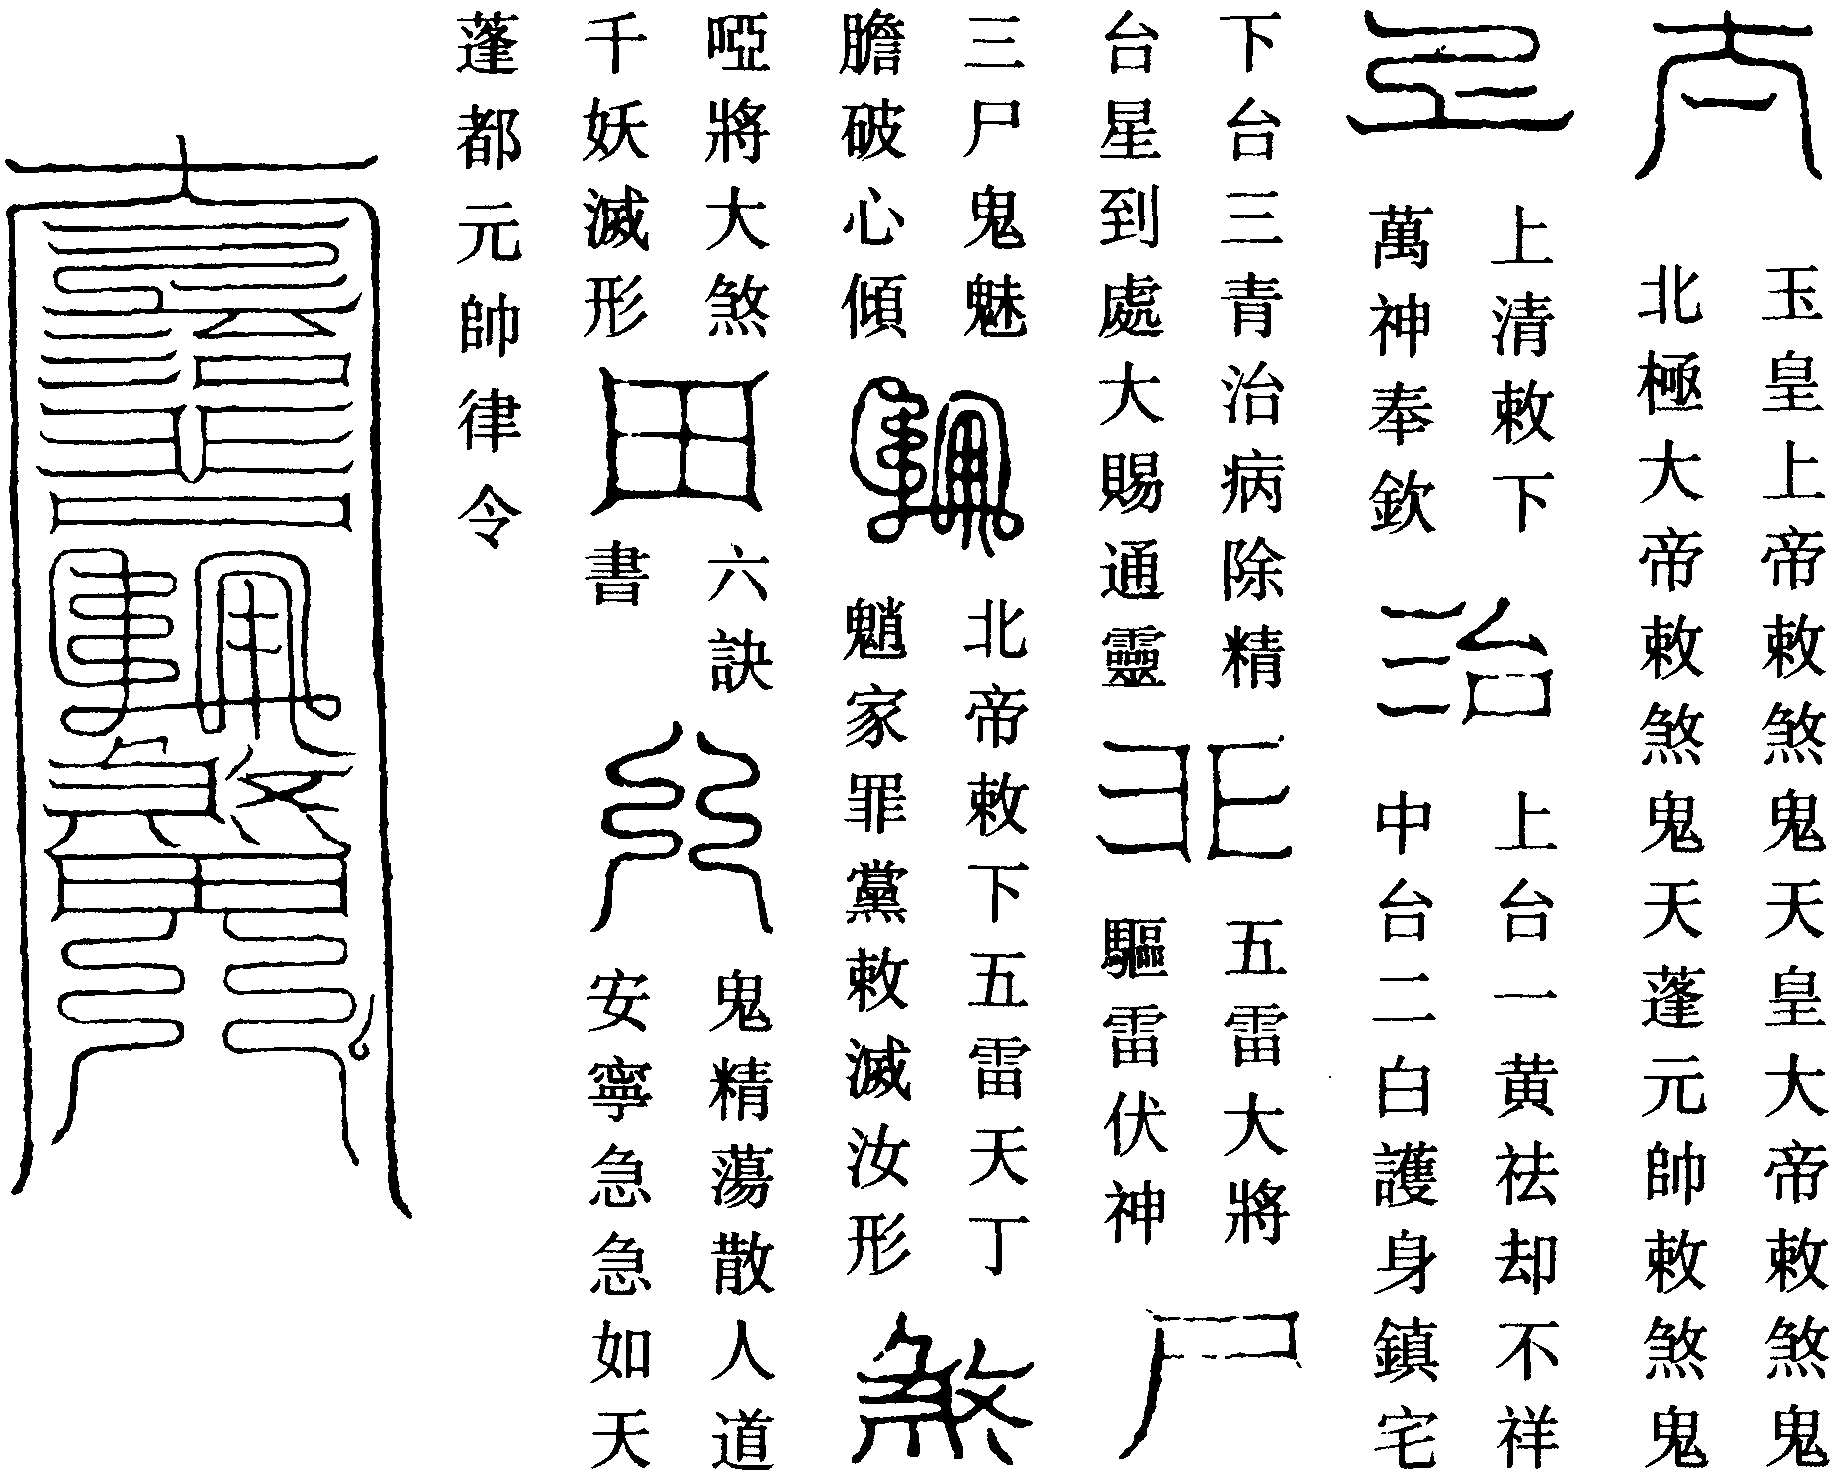 玉皇上帝敕煞鬼天皇大帝敕煞鬼
北極大帝敕煞鬼天蓬元帥敕煞鬼
上清敕下
萬神奉欽
治
上台一黄祛却不祥
中台二白護身鎮宅
下台三青治病除精
台星到處大賜通靈
五雷大將
驅雷伏神
尸
三尸鬼魅
膽破心傾
北帝敕下五雷天丁
魈家罪黨敕滅汝形
煞
啞將大煞
千妖滅形
田
六訣
書
鬼精蕩散人道
安寧急急如天
蓬都元帥律令